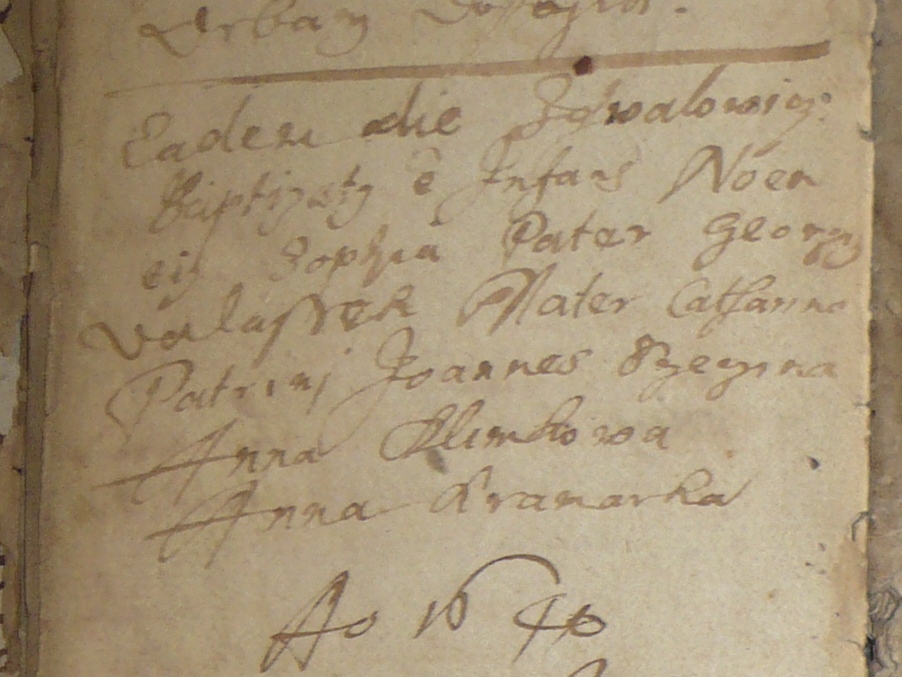 Urban
Eadem die Zywalowicz:
Baptizatg ē Infans Nōen
eig Zophia Pater Georgg
Valassek Mater Catharina
Patrini Joannes
Anna Klimkowa
Anna Kramarka
Ao 1640